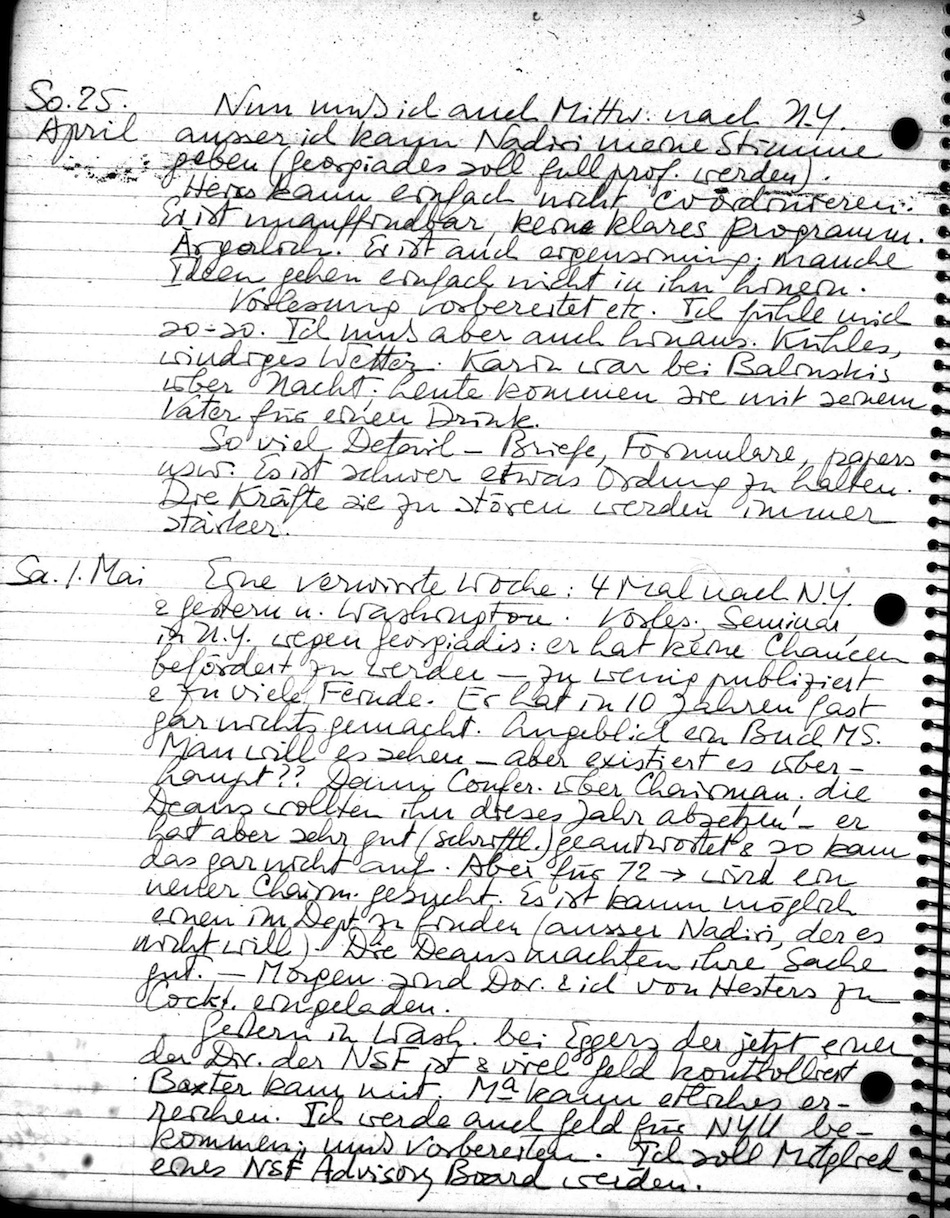 So. 25. Nun muß ich auch Mittw. nach N.Y.
April ausser ich kann Nadiri meine Stimme
geben (Georgiades soll full prof. werden).
kann einfach nicht coordinieren.
Er ist unauffindbar, keine klares Programm.
Ärgerlich. Er ist auch eigensinnig; manche
Ideen gehen einfach nicht in ihn hinein.
Vorlesung vorbereitet etc. Ich fühle mich
so-so. Ich muß aber auch hinaus. Kühles,
windiges Wetter. Karin war bei Balinskis
über Nacht; heute kommen sie mit seinem
Vater für einen Drink.
So viel Detail – Briefe, Formulare, papers
usw. Es ist schwer etwas Ordnung zu halten.
Die Kräfte sie zu stören werden immer
stärker.
Sa. 1. Mai Eine verwirrte Woche: 4 Mal nach N.Y.
& gestern n. Washington. Vorles., Seminar
in N.Y. wegen Georgiadis: er hat keine Chancen
befördert zu werden – zu wenig publiziert
& zu viele Feinde. Er hat in 10 Jahren fast
gar nichts gemacht. Angeblich ein Buch MS.
Man will es sehen – aber existiert es über-
haupt?? Dann Confer. über Chairman. die
Deans wollten ihn dieses Jahr absetzen! – er
hat aber sehr gut (schriftl.) geantwortet & so kam
das gar nicht auf. Aber für 72 → wird ein
neuer Chairm. gesucht. Es ist kaum möglich
einen im Dept. zu finden (ausser Nadiri, der es
nicht will). Die Deans machten ihre Sache
gut. – Morgen sind Dor. & ich von Hesters zu
Cockt. eingeladen.
Gestern in Wash. bei Eggers der jetzt einer
der Dir. der NSF ist & viel Geld kontrolliert
Baxter kam mit. Ma kann etliches er-
reichen. Ich werde auch Geld für NYU be-
kommen; muß vorbereiten. Ich soll Mitglied
eines NSF Advisory Board werden.